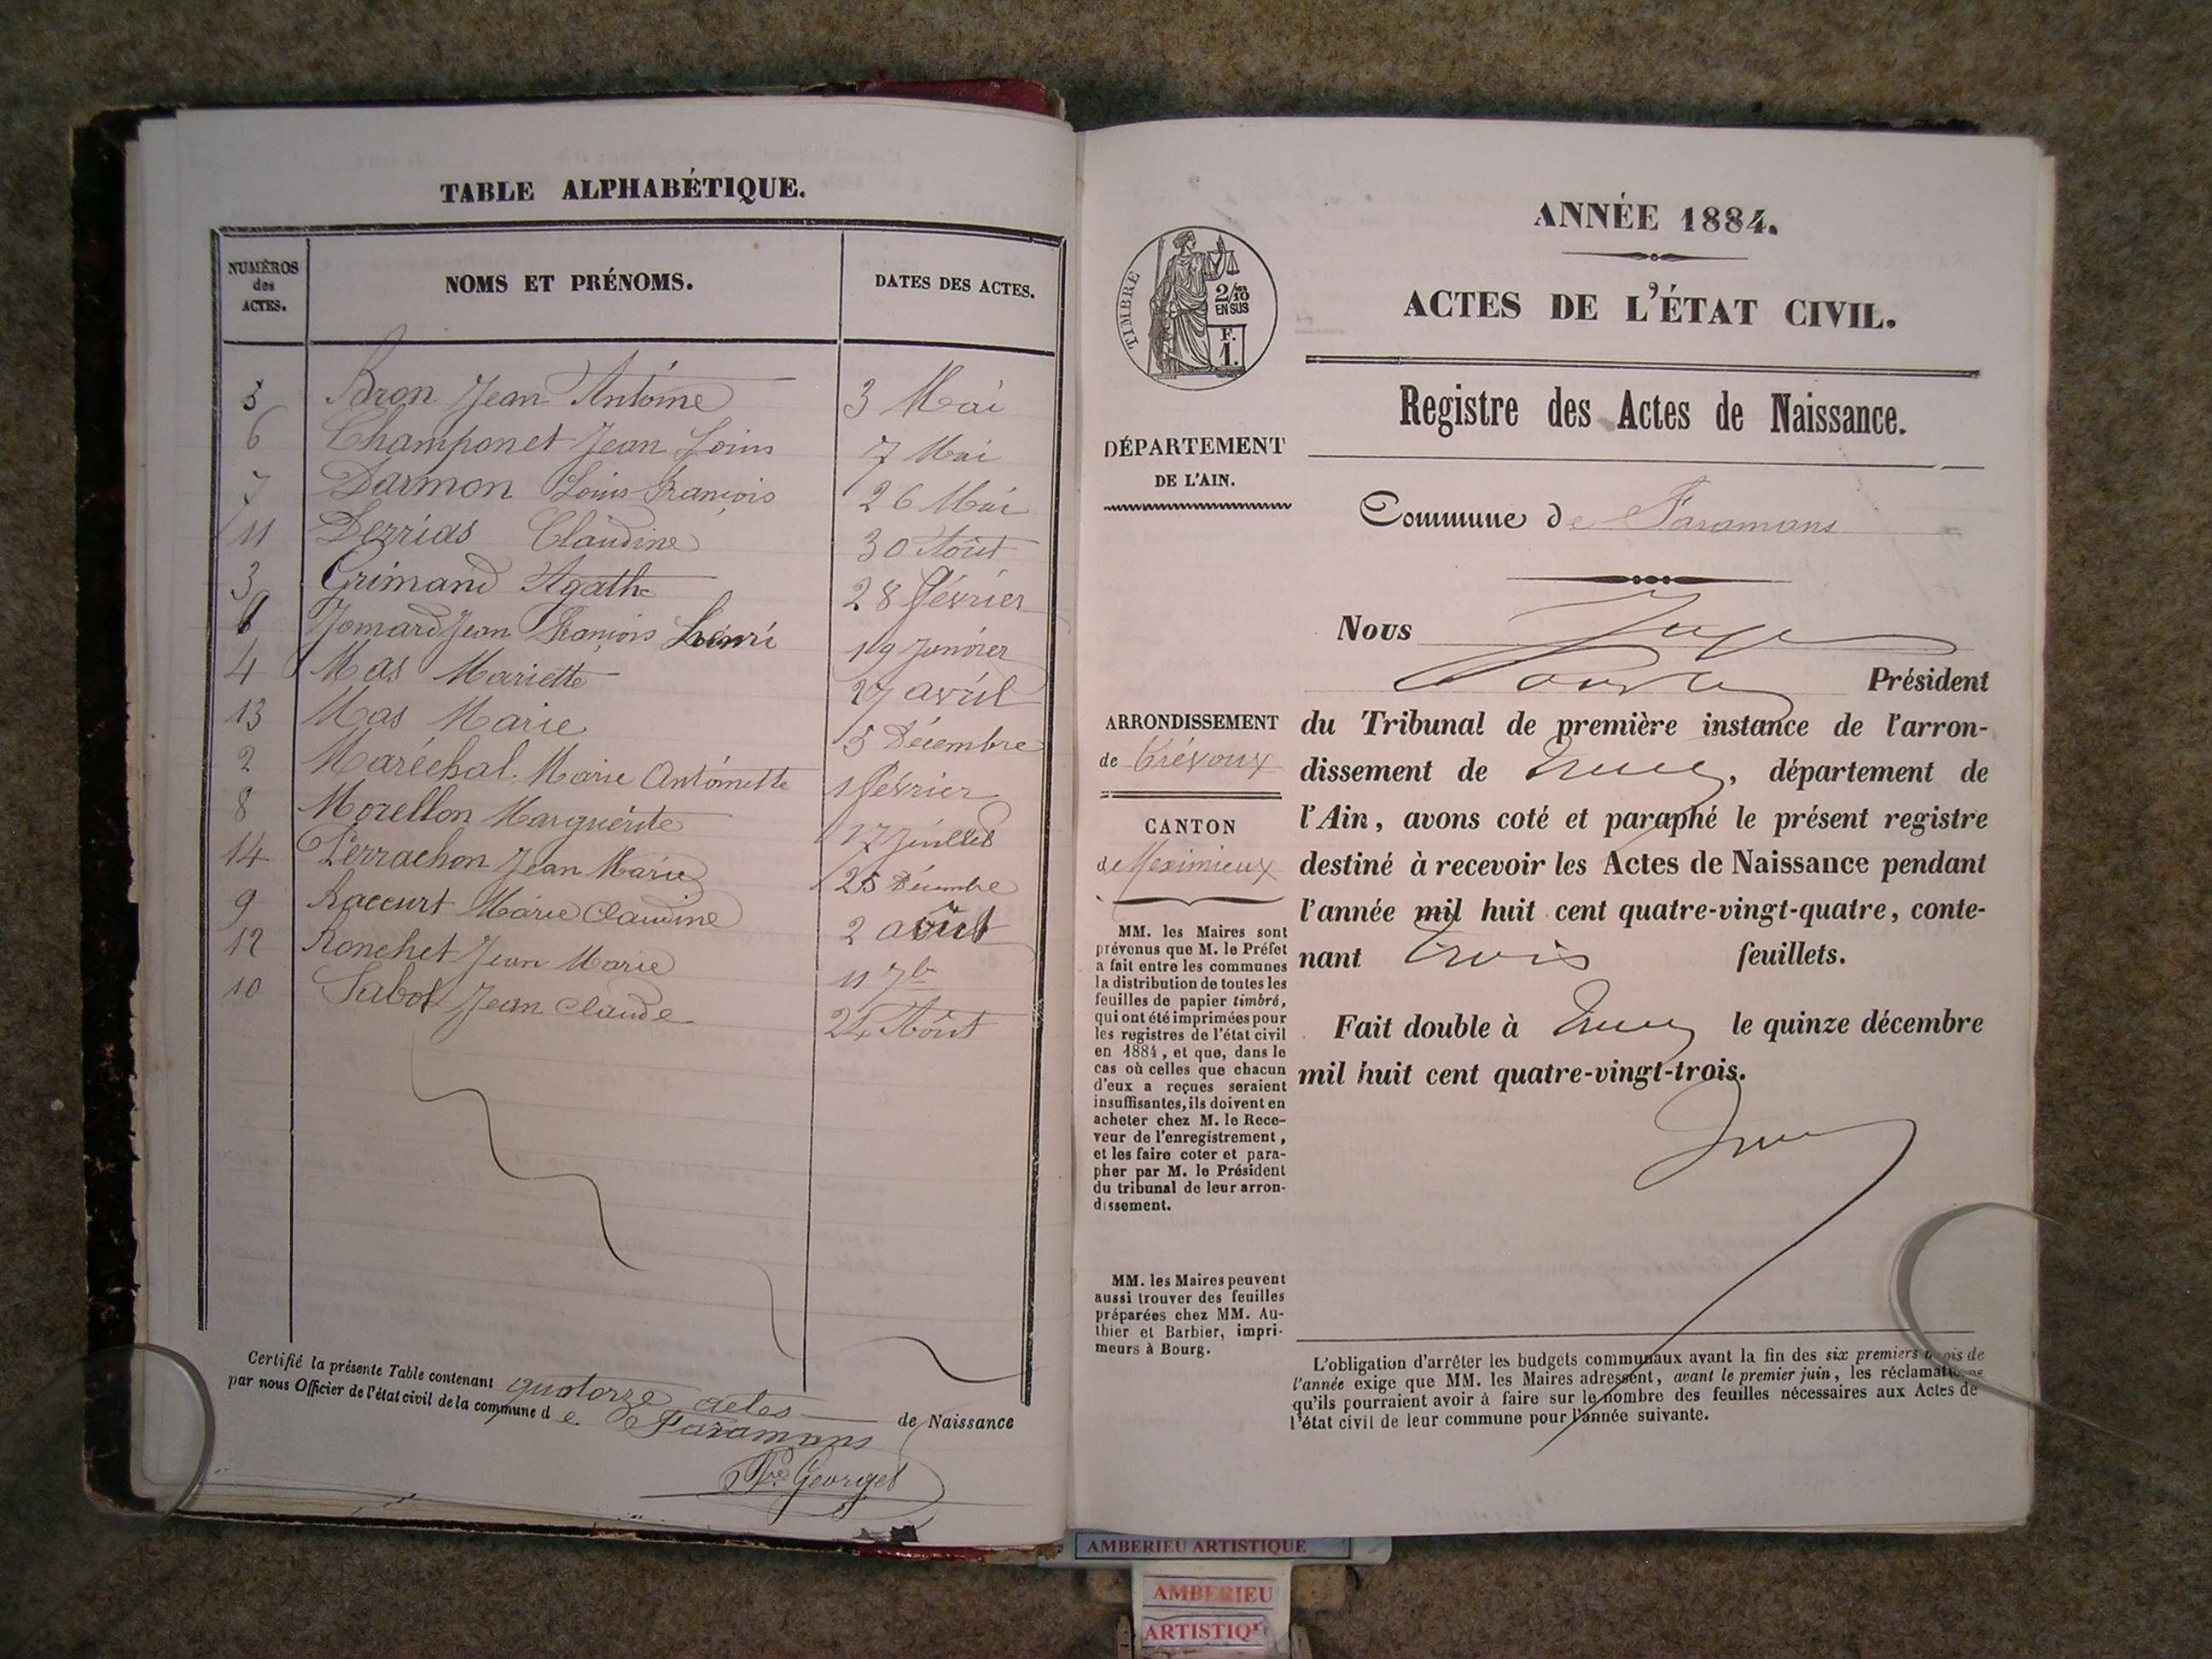 TABLE ALPHABÉTIQUE.
NUMÉROS des ACTES. NOMS ET PRÉNOMS. DATES DES ACTES.
5 Bron Jean Antoine 3 Mai
6 Champonet Jean Louis 7 Mai
7 Darmon Louis François 26 Mai
11 Derrias Claudine 30 Août
3 Grimand Agathe 28 Février
1 Jomard Jean François Henri 19 Janvier
4 Mas Mariette 27 avril
13 Mas Marie 5 Décembre
2 Maréchal Marie Antoinette 1 Février
8 Morellon Marguerite 17 Juillet
14 Perrachon Jean Marie 25 Décembre
9 Raccurt Marie Claudine 2 août
12 Ronchet Jean Marie 11 7bre
10 Sabot Jean Claude 24 Août
Certifié la présente Table contenant quatorze actes de Naissance
par nous Officier de l'état civil de la commune de Faramans
Georges
TIMBRE
2/10 EN SUS
F. 1.
DÉPARTEMENT
DE L'AIN.
ARRONDISSEMENT
de Trévoux
CANTON
de Meximieux
MM. les Maires sont
prévenus que M. le Préfet
a fait entre les communes
la distribution de toutes les
feuilles de papier timbré,
qui ont été imprimées pour
les registres de l'état civil
en 1884, et que, dans le
cas où celles que chacun
d'eux a reçues seraient
insuffisantes, ils doivent en
acheter chez M. le Rece-
veur de l'enregistrement,
et les faire coter et para-
pher par M. le Président
du tribunal de leur arron-
dissement.
MM. les Maires peuvent
aussi trouver des feuilles
préparées chez MM. Au-
thier et Barbier, impri-
meurs à Bourg.
ANNÉE 1884.
ACTES DE L'ÉTAT CIVIL.
Registre des Actes de Naissance.
Commune de Faramans
Nous Juge
Président
du Tribunal de première instance de l'arron-
dissement de Trévoux, département de
l'Ain, avons coté et paraphé le présent registre
destiné à recevoir les Actes de Naissance pendant
l'année mil huit cent quatre-vingt-quatre, conte-
nant trois feuillets.
Fait double à Trévoux le quinze décembre
mil huit cent quatre-vingt-trois.
L'obligation d'arrêter les budgets communaux avant la fin des six premiers mois de
l'année exige que MM. les Maires adressent, avant le premier juin, les réclamations
qu'ils pourraient avoir à faire sur le nombre des feuilles nécessaires aux Actes de
l'état civil de leur commune pour l'année suivante.
AMBERIEU ARTISTIQUE
AMBERIEU
ARTISTIQUE